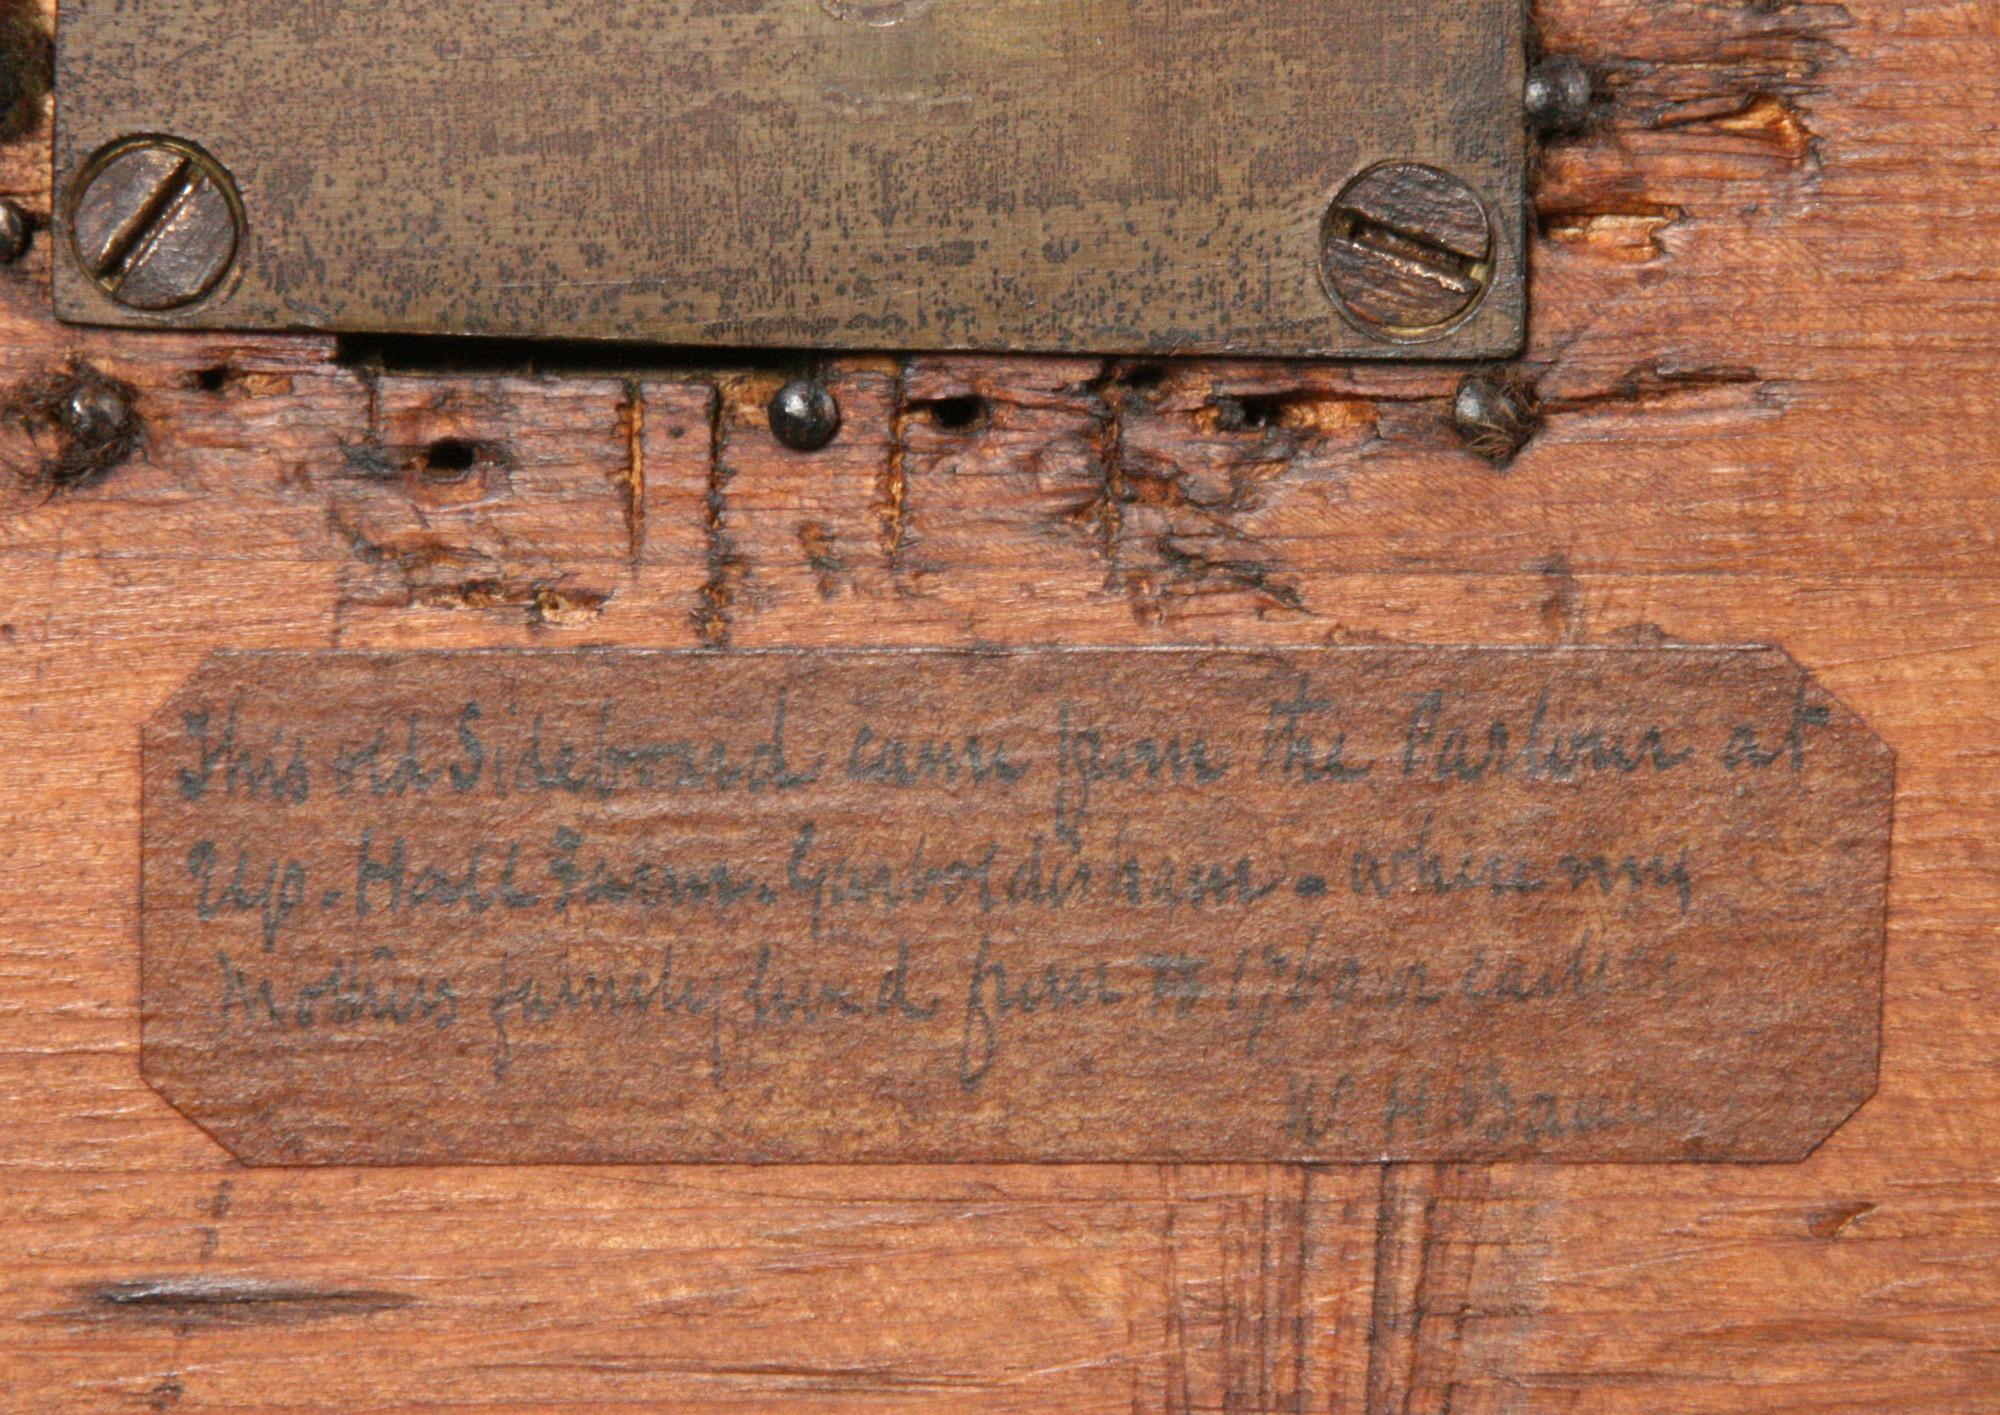 This old Sideboard came from the Parlour at
Up. Hall Farm. Garboldisham. where my
Mothers family lived from 1760 or earlier
W. H.